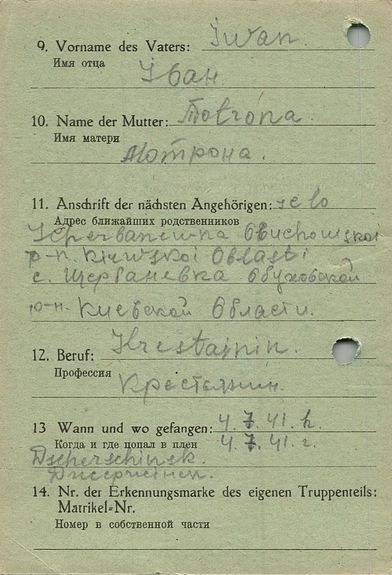 9. Vorname des Vaters: Iwan.
Имя отца
Iван
10. Name der Mutter: Motrona
Имя матери
Мотрона.
11. Anschrift der nächsten Angehörigen: selo
Адрес ближайших родственников
Obuchowskoi
r-n. Kiewskoi Oblasti
с. Щербаневка Обуховской
р-н. Киевской Области.
12. Beruf: Krestajnin.
Профессия
Крестьянин.
13 Wann und wo gefangen: 4.7.41. h.
Когда и где попал в плен 4.7.41. г.
Dscherschinsk
14. Nr. der Erkennungsmarke des eigenen Truppenteils:
Matrikel-Nr.
Номер в собственной части